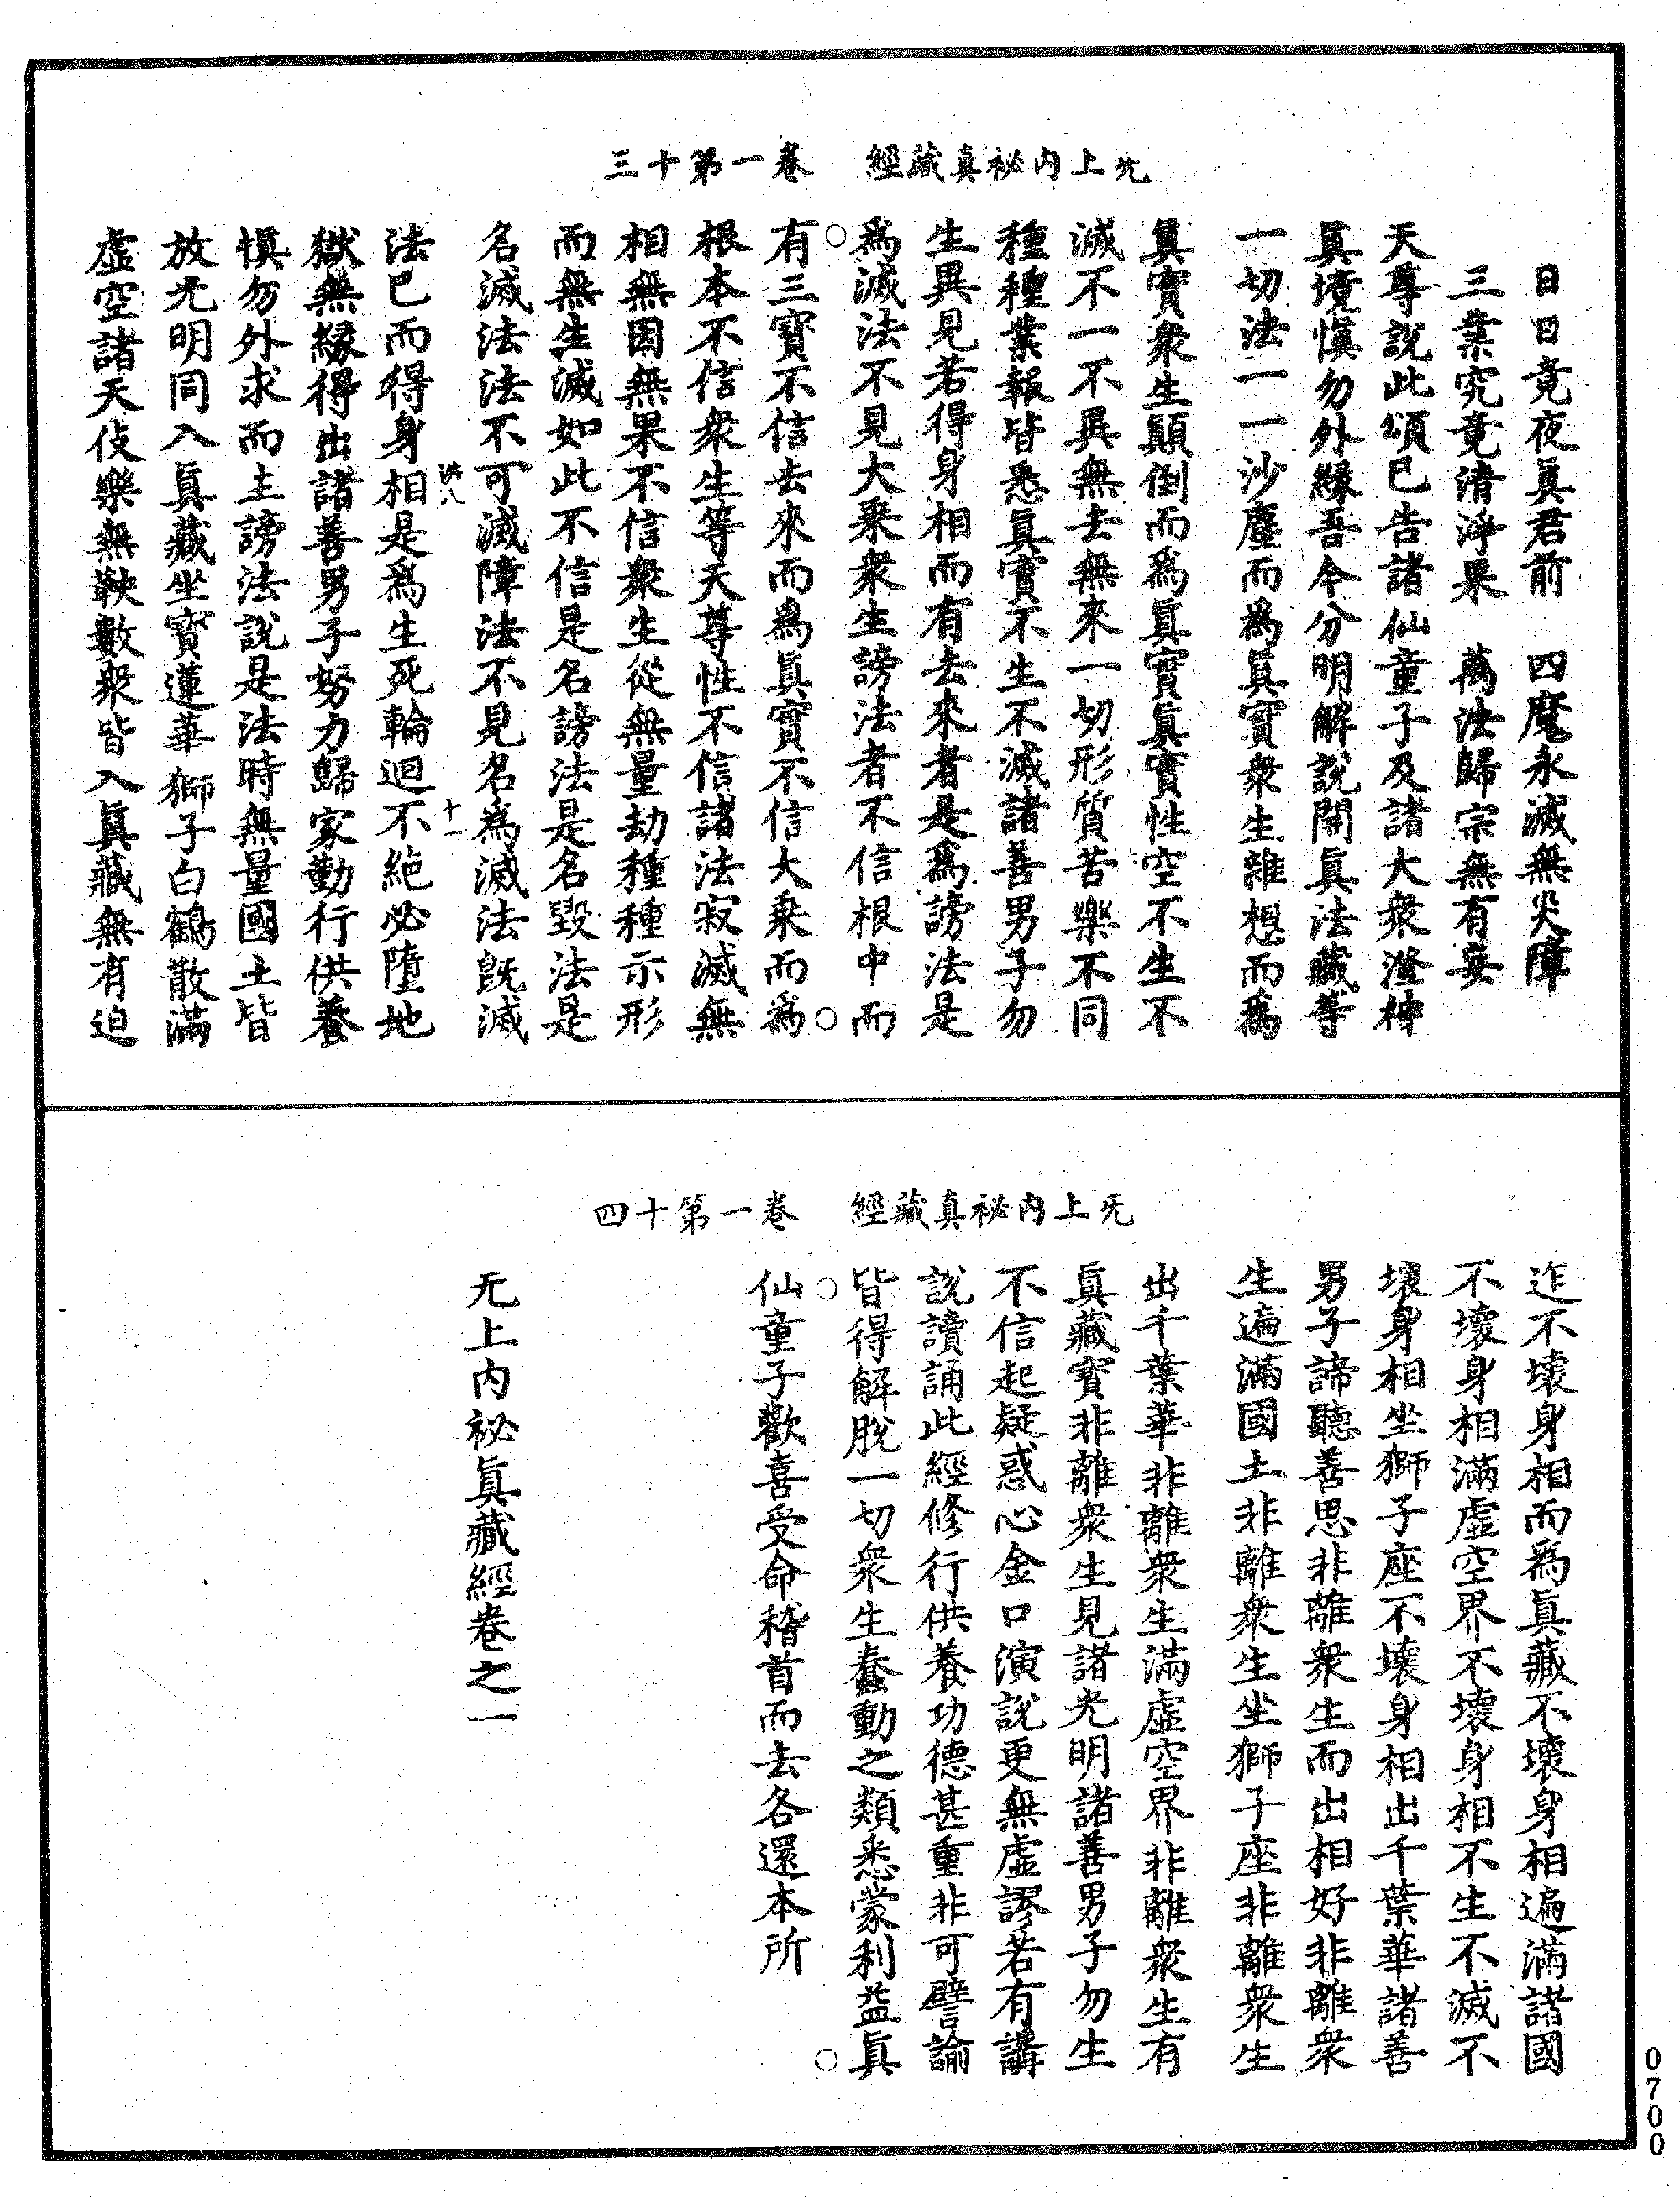 无上內祕真藏經 卷一第十三
日日竟夜眞君前 四魔永滅無災障
三業究竟清淨果 萬法歸宗無有妄
天尊說此頌已告諸仙童子及諸大衆澄神
眞境愼勿外緣吾今分明解說開眞法藏等
一切法一一沙塵而爲眞實衆生離想而爲
眞實衆生顚倒而爲眞實眞實性空不生不
滅不一不異無去無來一切形質苦樂不同
種種業報皆悉眞實不生不滅諸善男子勿
生異見若得身相而有去來者是爲謗法是
爲滅法不見大乘衆生謗法者不信根中而
有三寶不信去來而爲眞實不信大乘而爲
根本不信衆生等天尊性不信諸法寂滅無
相無因無果不信衆生從無量劫種種示形
而無生滅如此不信是名謗法是名毀法是
名滅法法不可滅障法不見名爲滅法旣滅
洪八 十一
法已而得身相是爲生死輪迴不絕必墮地
獄無緣得出諸善男子努力歸家勤行供養
愼勿外求而主謗法說是法時無量國土皆
放光明同入眞藏坐寶蓮華獅子白鶴散滿
虛空諸天伎樂無鞅數衆皆入眞藏無有迫
无上內祕真藏經 卷一第十四
迮不壞身相而爲眞藏不壞身相遍滿諸國
不壞身相滿虛空界不壞身相不生不滅不
壞身相坐獅子座不壞身相出千葉華諸善
男子諦聽善思非離衆生而出相好非離衆
生遍滿國土非離衆生坐獅子座非離衆生
出千葉華非離衆生滿虛空界非離衆生有
眞藏寶非離衆生見諸光明諸善男子勿生
不信起疑惑心金口演說更無虛謬若有講
說讀誦此經修行供養功德甚重非可譬諭
皆得解脫一切衆生蠢動之類悉蒙利益眞
仙童子歡喜受命稽首而去各還本所
无上內祕眞藏經卷之一
0700